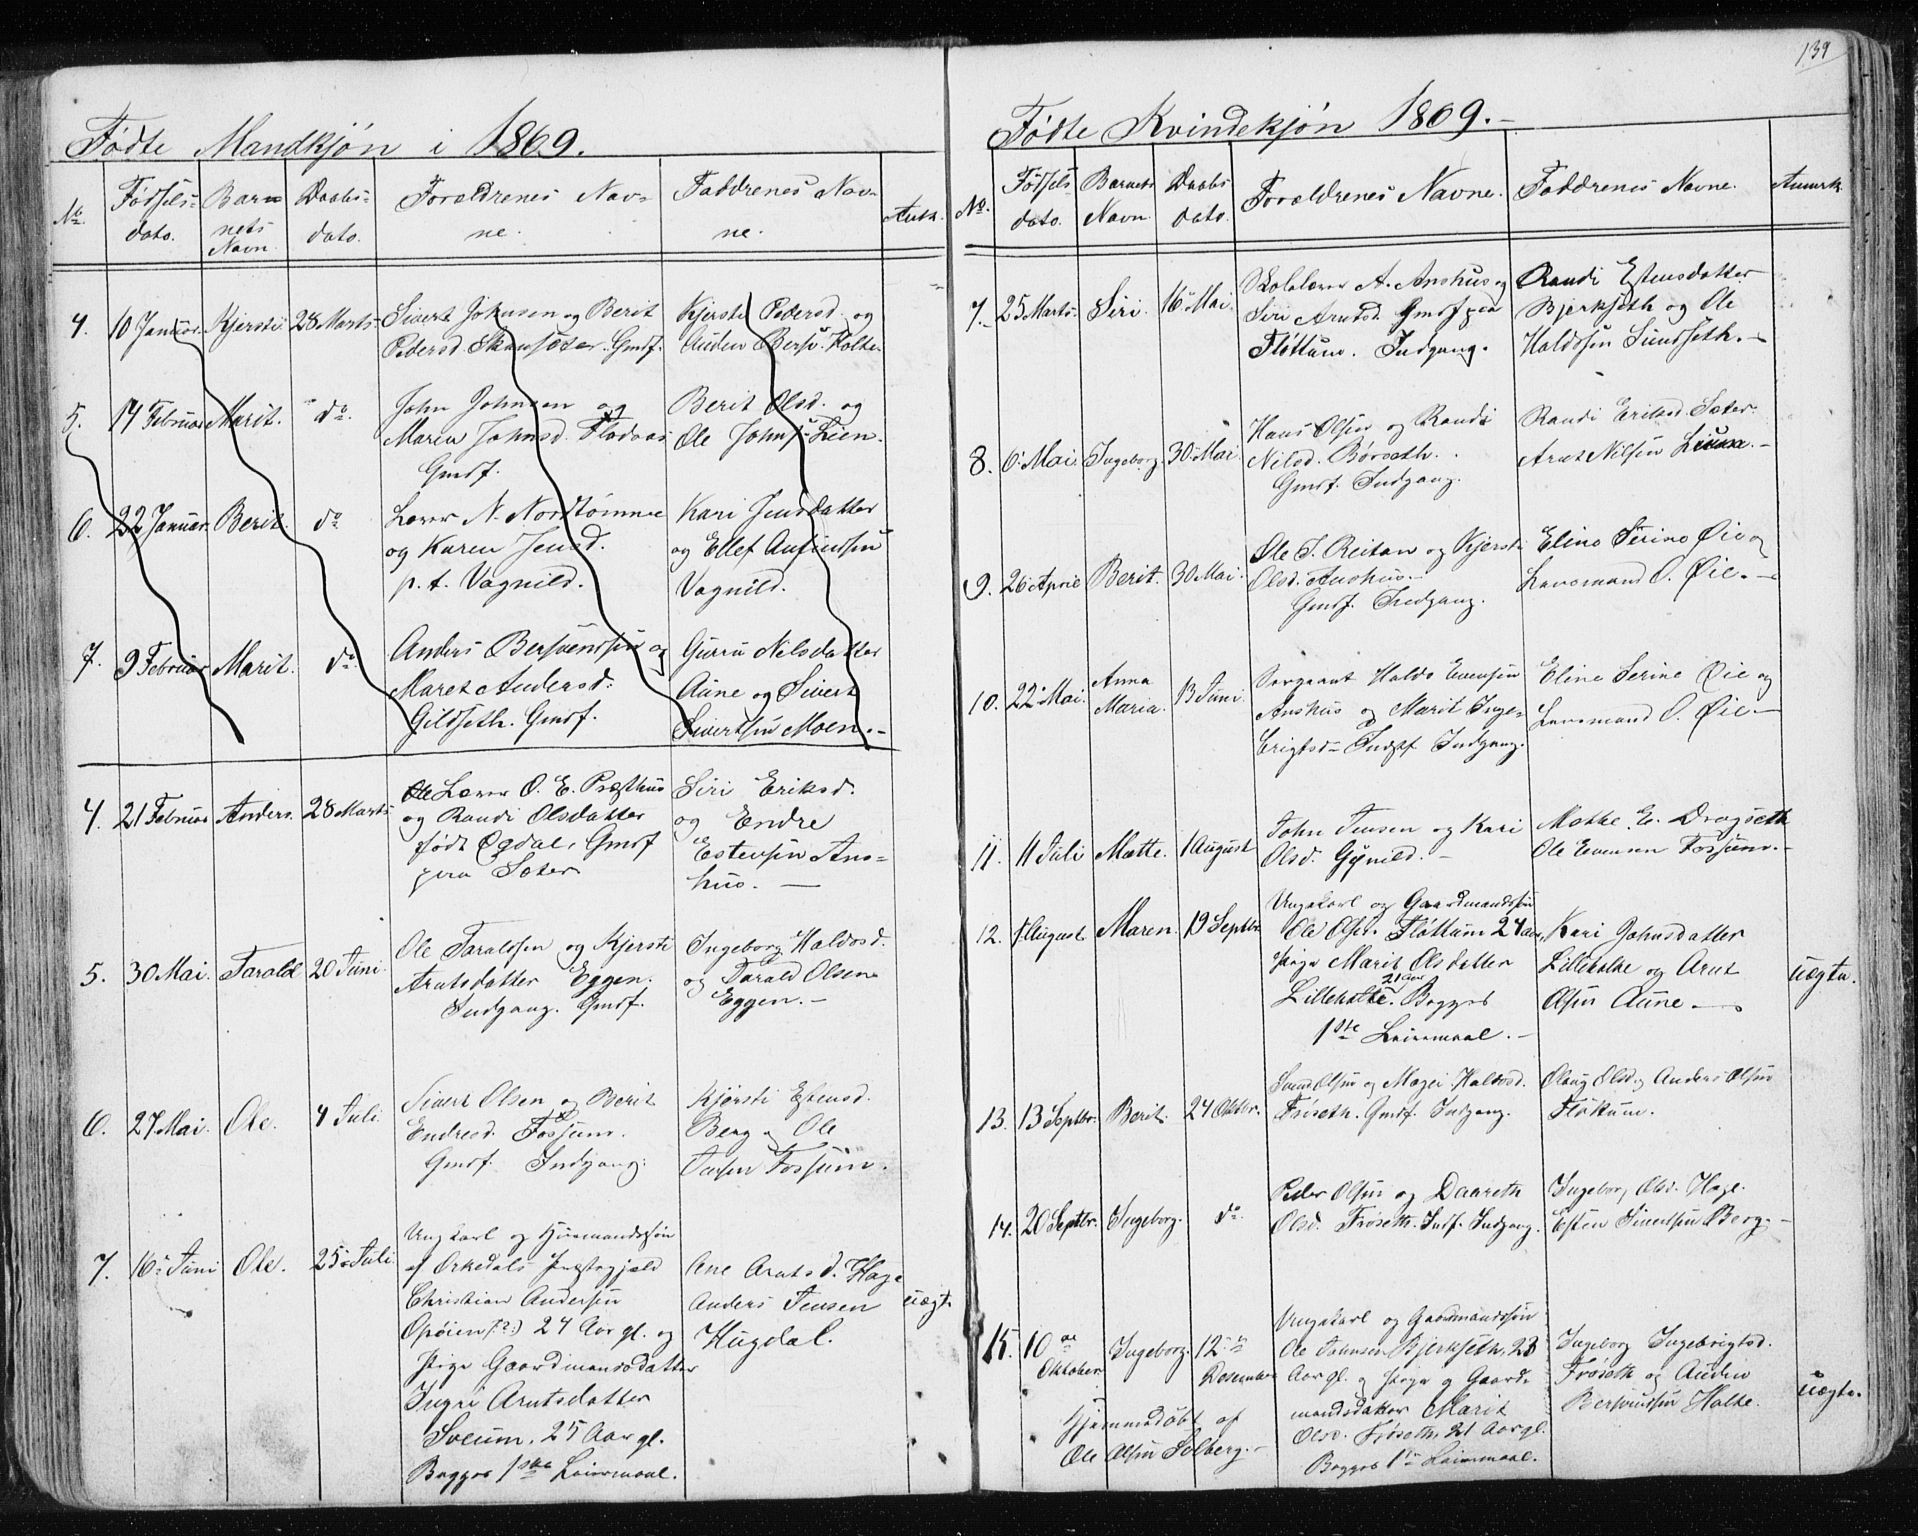 139
Fødte Mandkjøn i 1869.
No. Fødsels-dato. Barnets Navn. Daabs-dato. Forældrenes Navne. Faddrenes Navne. Anm.
4. 10 Januar. Kjersti 28 Marts. Sivert Johnsen og Berit Kjersti Pedersd. og
Pedersd. Gmdf. Auden Bersv. Holte
5. 14 Februar Marit. do. John Johnsen og Berit Olsd. og
Maren Johnsd. Flodaas Ole Johns. Lien.
Gmdf.
6. 22 Januar. Berit. do Lærer N. Nordtømme Kari Jensdatter
og Karen Jensd. og Ellef Anfindsen
p. t. Vagnild. Vagnild.
7. 9 Februar Marit. do. Anders Bersvendsen og Guru Nelsdatter
Maret Andersd. Aune og Sivert
Gildseth. Gmdf. Sivertsen Moen.-
4. 21 Februar Anders. 28 Marts Lærer O. E. Præsthus Siri Eriksd.
og Randi Olsdatter og Endre
født Ogdal, Gmdf Estensen Ans-
paa Sæter hus. —
5. 30 Mai. Tarald 20 Juni. Ole Taraldsen og Kjersti Ingeborg Haldosd.
Arntsdatter Eggen. og Tarald Olsen
Indgang. Gmdf. Eggen.-
6. 27 Mai. Ole. 4 Juli. Sivert Olsen og Berit Kjersti Estensd.
Endresd. Fossum. Berg og Ole
Gmdf. Indgang. Jensen Fossum.
7. 16 Juni Ole. 25 Juli. Ungkarl og Huusmandssøn
af Orkedals Præstegjeld Ane Arntsd. Hage
Christian Andersen Anders Jensen uægt.
Opøien (?) 24 Aar gl. og Hugdal.
Pige Gaardmandsdatter
Ingri Arntsdatter
Soeum, 25 Aar gl.
Begges 1ste Leiermaal.
Fødte Kvindekjøn 1869.-
No. Fødsels-dato. Barnets Navn. Daabs-dato. Forældrenes Navne. Faddrenes Navne. Anmrk.
7. 25 Marts. Siri. 16 Mai. Skolelærer A. Anshus og Randi Estensdatter
Siri Arntsd. Gmdf paa Bjerkseth og Ole
Fløttum. Indgang. Haldosen Sundseth.-
8. 6 Mai. Ingeborg. 30 Mai. Hans Olsen og Randi Randi Eriksd. Sæter.
Nilsd. Børseth. Arnt Nilsen Lium.-
Gmdf. Indgang.
9. 26 April Berit. 30 Mai. Ole J. Reitan og Kjersti Eline Serine Øie og
Olsd. Anshus.- Lensmand O. Øie.-
Gmdf. Indgang.
10. 22 Mai. Anna Maria. 13 Juni Sergeant Haldo Evensen Eline Serine Øie og
Anshus og Marit Inge- Lensmand O. Øie-
Indgang.
11. 11 Juli Mætte. 1 August John Jensen og Kari Mætte E. Dragseth
Olsd. Gynild.- Ole Evensen Fossum.-
12. 1 August Maren. 19 Septbr. Ungkarl og Gaardmandssøn
Ole Olsen Fløttum 24 Aar, Kari Johnsdatter
Pige Marit Olsdatter Lilleholte og Arnt uægte.
Lilleholte. 21 Aar Begges Olsen Aune
1ste Leiermaal.-
13. 13 Septbr. Berit. 24 Oktbr. Svend Olsen og Haldosd. Olaug Olsd. og Anders Olsen
Frøseth. Gmdf. Indgang. Fløttum.
14. 20 Septbr. Ingeborg. do. Peder Olsen og Daareth Ingeborg Olsd. Hage.
Olsd. Frøseth. Indf. Indgang. Esten Sivertsen Berg.-
15. 10de Oktober Ingeborg. 12te December Ungkarl og Gaardmandssøn
Ole Johnsen Bjerkseth, 23 Ingeborg Ingebrigtsd.
Aar gl. og Pige og Gaard- Frøseth og Auden
mandsdatter Marit Bersvendsen Holte. uægte.
Hjemmedøbt af Olsd. Frøseth, 21 Aar gl.
Ole Olsen Solberg.- Begges 1ste Leiermaal.